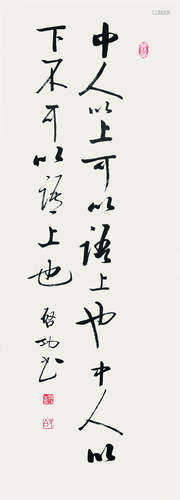 中人以上可以语上也中人以
下不可以语上也
启功书